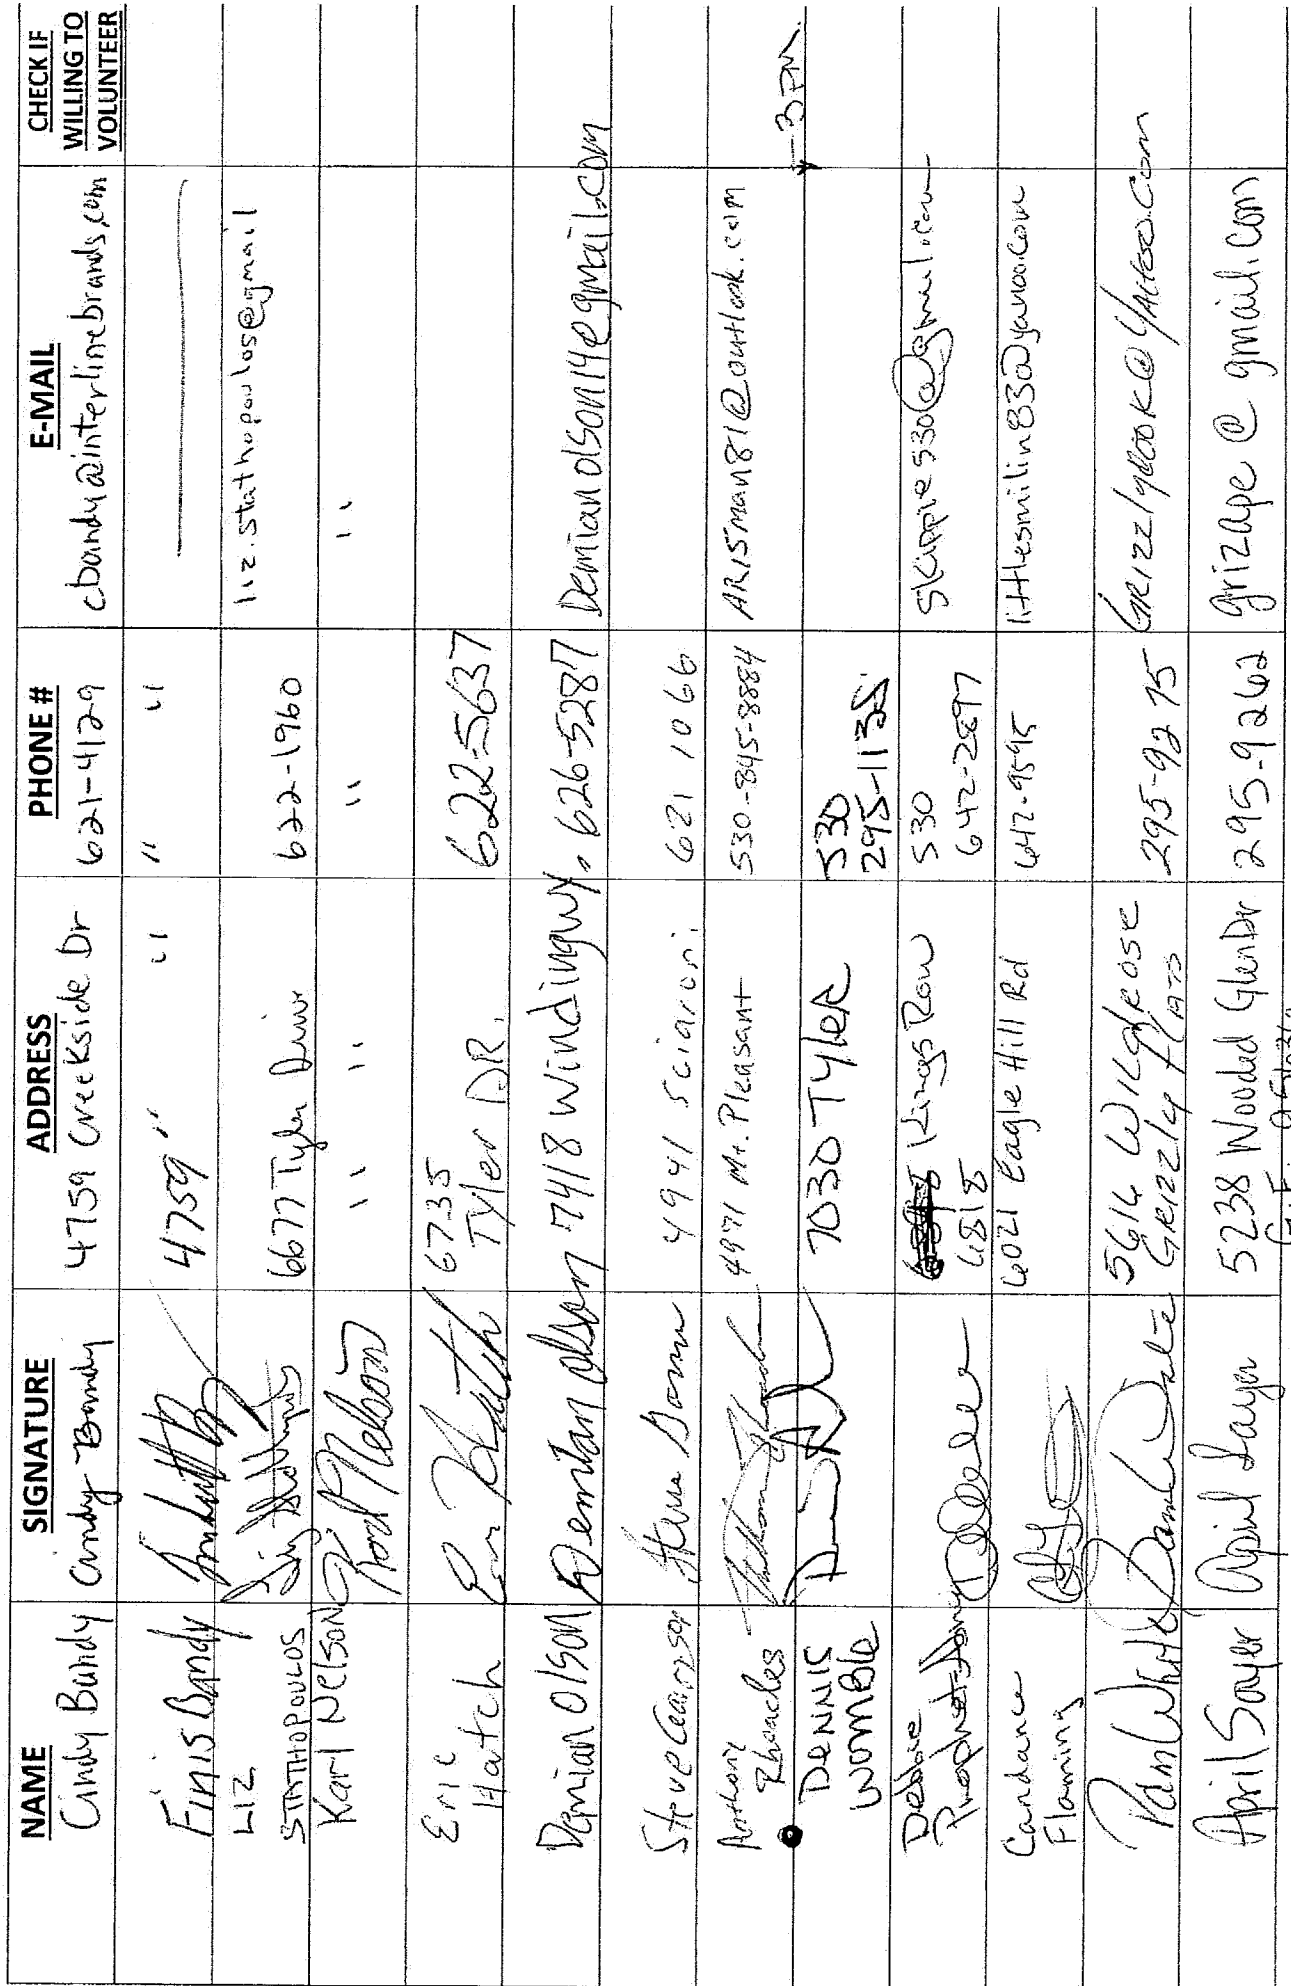 NAME SIGNATURE ADDRESS PHONE # E-MAIL CHECK IF WILLING TO VOLUNTEER
Cindy Bandy Cindy Bandy 4759 Creekside Dr 621-4129 cbandy@interlinebrands.com
Finis Bandy 4759 " " " "
LIZ STATHOPOULOS 6677 Tyler Drive 622-1960 liz.stathopoulos@gmail
Karl Nelson Karl Nelson " " " "
Eric Hatch 6735 Tyler DR. 622-5637
Demian Olson Demian Olson 7418 Windingwy. 626-5287 Demianolson14@gmail.com
Steve 4941 Sciaroni 621 1066
Rhoades 4971 Mt. Pleasant 530-845-8884 AR15man81@outlook.com
DENNIS WOMBLE 7030 TYLER 530 295-1135 -3PM
Debbie 6818 Kings Row 530 642-2897 Skippie530@gmail.com
Candance Flaming 6021 Eagle Hill Rd 642-9595 littlesmilin83@yahoo.com
Pam White 5616 Wildrose Grizzly Flats 295-9275 Grizzlyrook@Yahoo.com
April Sayer April Sayer 5238 Wooded Glen Dr 295-9262 grizape@gmail.com